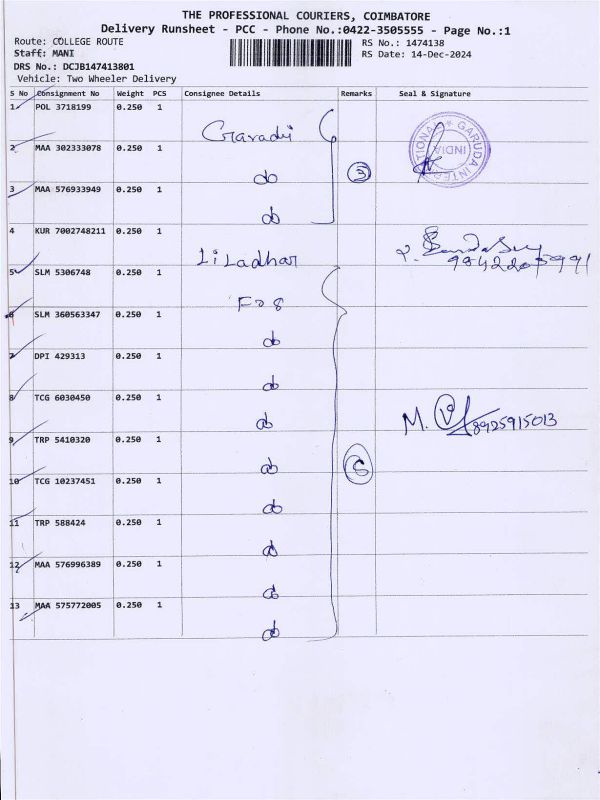 THE PROFESSIONAL COURIERS, COIMBATORE
Delivery Runsheet - PCC - Phone No.:0422-3505555 - Page No.:1
Route: COLLEGE ROUTE
RS No.: 1474138
Staff: MANI
RS Date: 14-Dec-2024
DRS No.: DCJB147413801
Vehicle: Two Wheeler Delivery
S No Consignment No Weight PCS Consignee Details Remarks Seal & Signature
1 POL 3718199 0.250 1
2 MAA 302333078 0.250 1
3 MAA 576933949 0.250 1
3
GARUDA INTERNATIONAL
INDIA
4 KUR 7002748211 0.250 1
LiLadhar
5 SLM 5306748 0.250 1
6 SLM 360563347 0.250 1
7 DPI 429313 0.250 1
8 TCG 6030450 0.250 1
M.
8925915013
9 TRP 5410320 0.250 1
10 TCG 10237451 0.250 1
11 TRP 588424 0.250 1
12 MAA 576996389 0.250 1
13 MAA 575772005 0.250 1